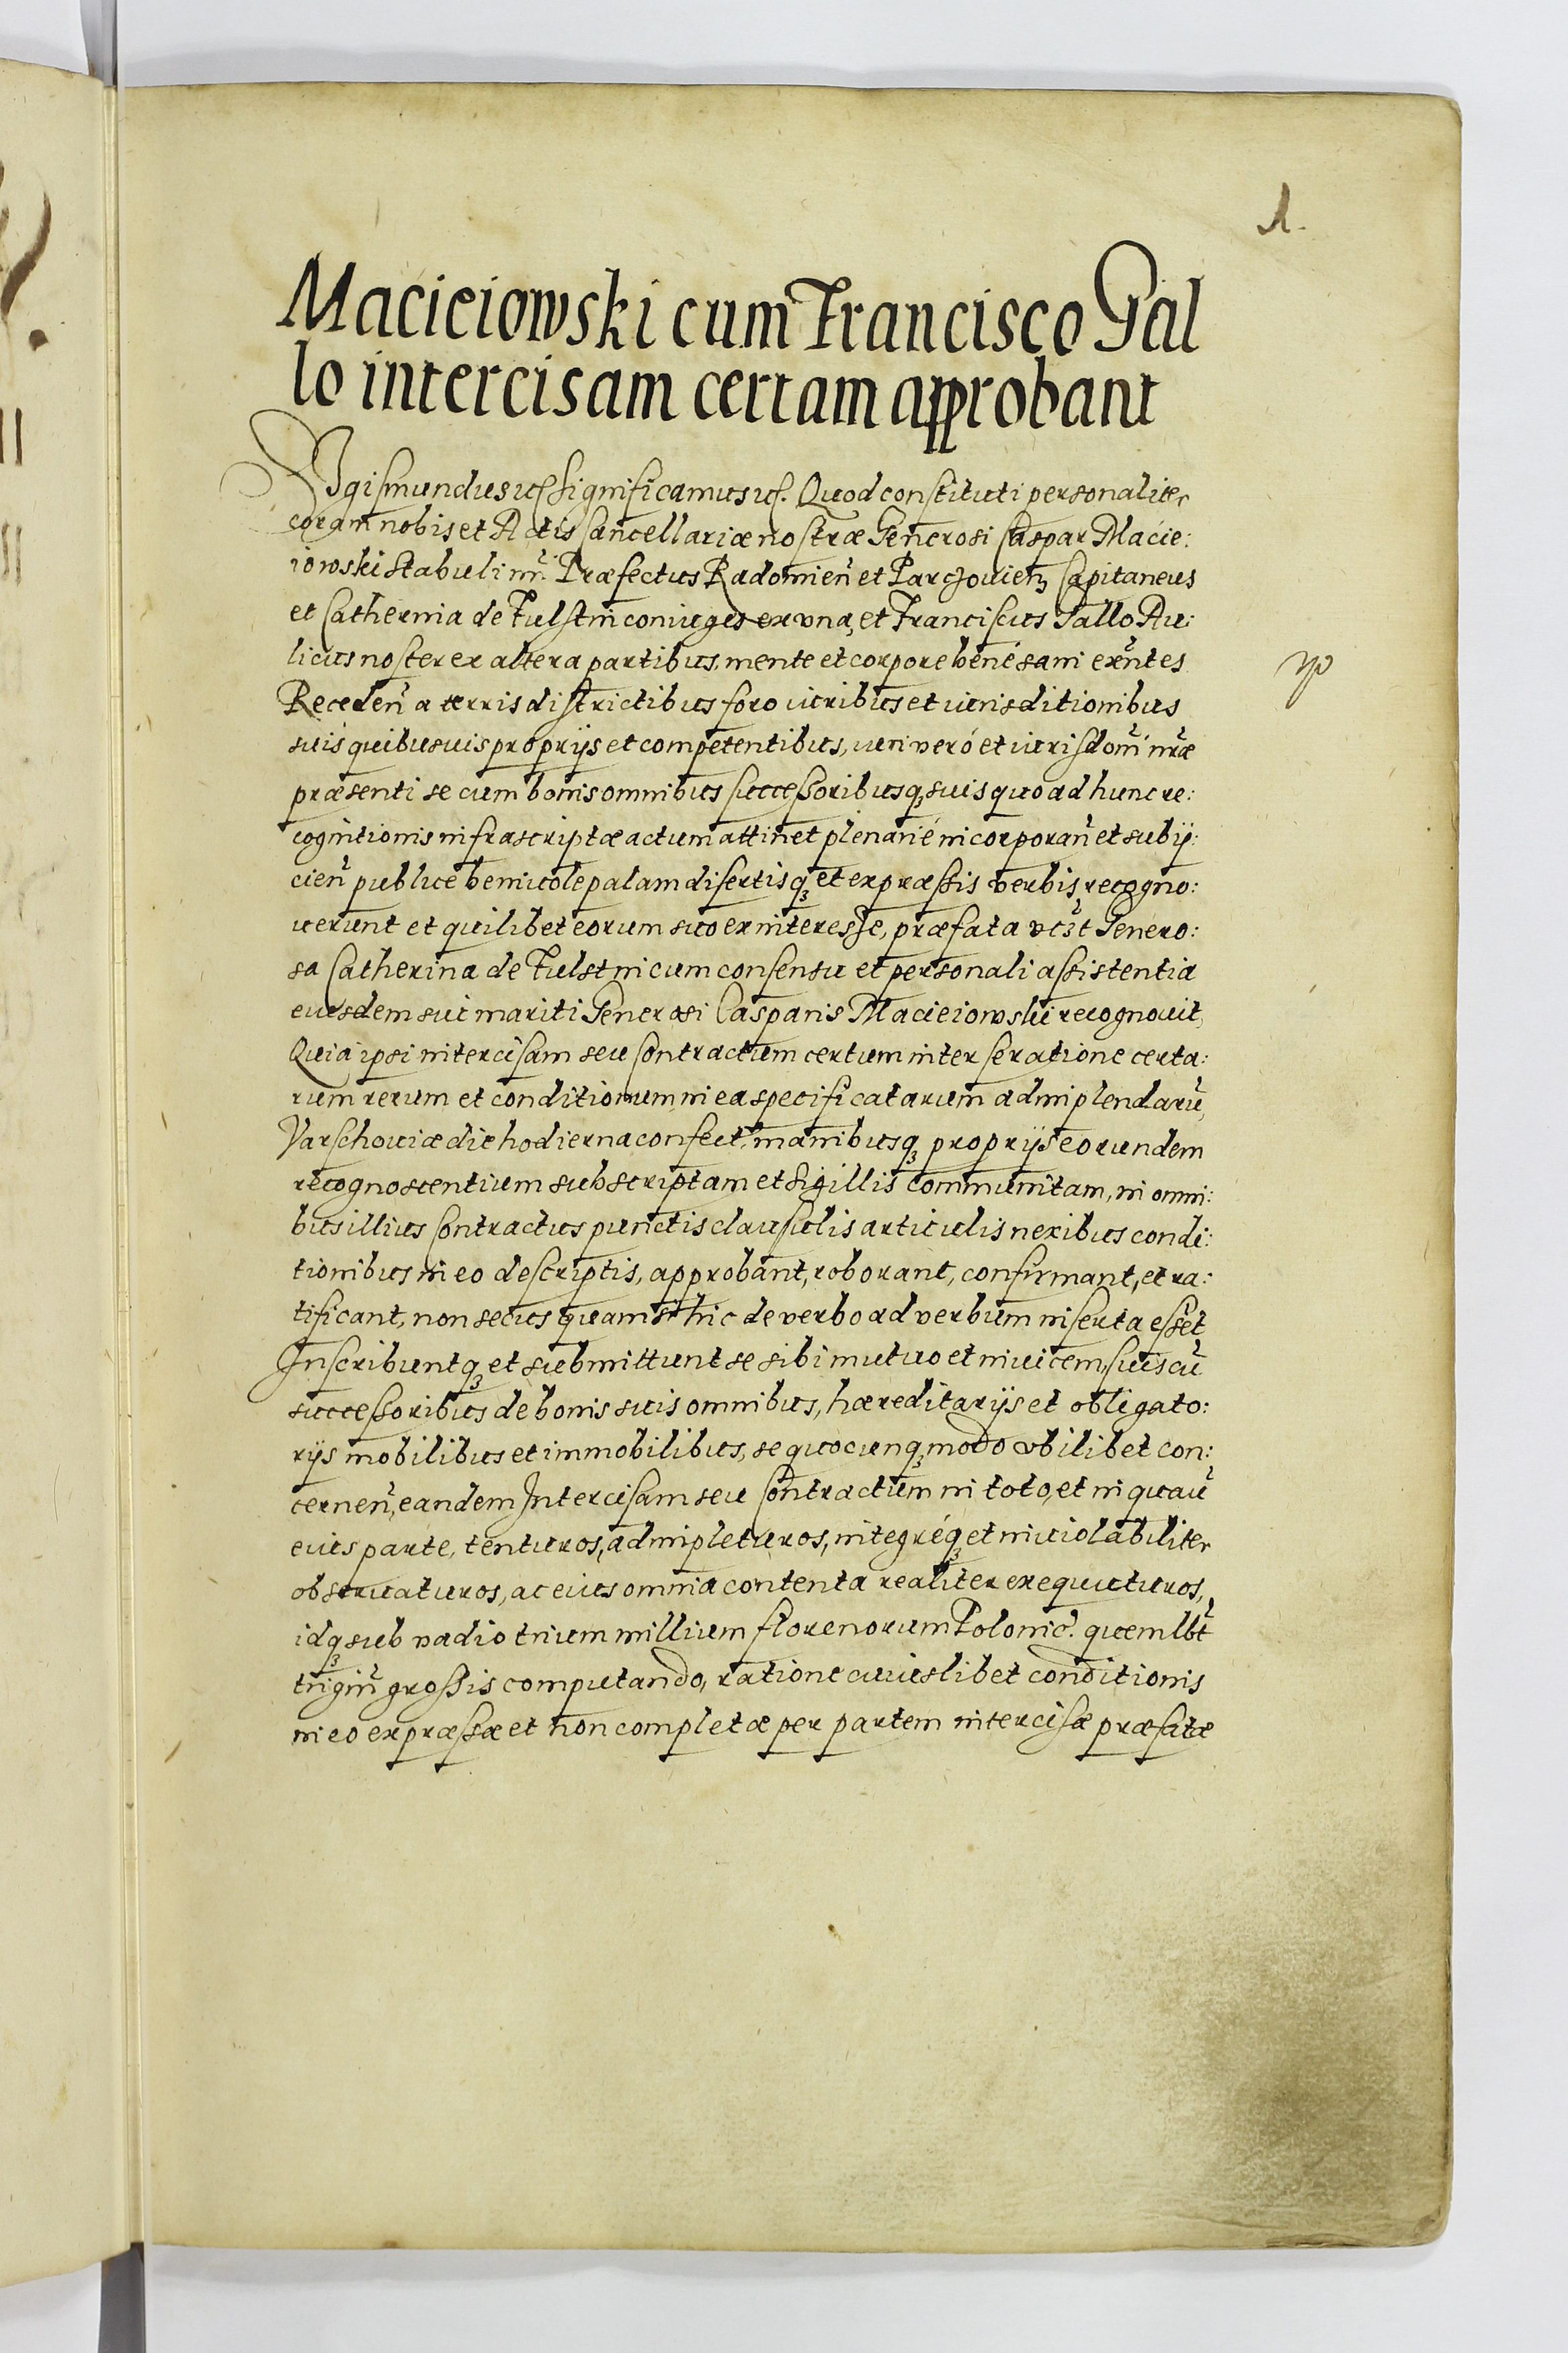 1.
Macieiowski cum Francisco Gal
lo intercisam certam approbant
Sigismundus etc. Significamus etc. Quod constituti personaliter
coram nobis et Actis Cancellariæ nostræ Generosi Caspar Macie:
iowski Stabuli nri Præfectus Radomieñ et Parczouien Capitaneus
et Catherina de Fulstin coniuges ex vna, et Franciscus Gallo Au:
licus noster ex altera partibus, mente et corpore bené sani exñtes
Recedeñ a terris districtibus foro iuribus et iurisditionibus
suis quibusuis proprijs et competentibus, iuri veró et iurisdoni nræ
præsenti se cum bonis omnibus successoribusq; suis quo ad hunc re:
cognitionis infrascriptæ actum attinet plenarié incorporañ et subij:
cieñ publice beniuole palam disertisq; et expræssis verbis, recogno:
uerunt et quilibet eorum suo ex interesse, præfata vero Genero:
sa Catherina de Fulstin cum consensu et personali assistentia
eiusdem sui mariti Generosi Casparis Macieiowski recognouit,
Quia ipsi intercisam seu Contractum certum inter se ratione certa:
rum rerum et conditionum in ea specificatarum adimplendarū,
Varschouiæ die hodierna confect. manibusq; proprijs eorundem
recognoscentium subscriptam et Sigillis communitam, in omni:
bus illius Contractus punctis clausulis articulis nexibus condi:
tionibus in eo descriptis, approbant, roborant, confirmant, et ra:
tificant, non secus quam si hic de verbo ad verbum inserta esset
Inscribuntq; et submittunt se sibi mutuo et inuicem, suis cū
successoribus de bonis suis omnibus, hæreditarijs et obligato:
rijs mobilibus et immobilibus, se quocunq; modo vbilibet con:
cerneñ, eandem Intercisam seu Contractum in toto, et in quauis
eius parte, tenturos, adimpleturos, integréq; et inuiolabiliter
obseruaturos, ac eius omnia contenta realiter exequuturos,
idq; sub vadio trium millium florenorum Polonic. quemlbt
trigiñ grossis computando, ratione cuiuslibet conditionis
in eo expræssæ et non completæ per partem intercisæ præfatæ